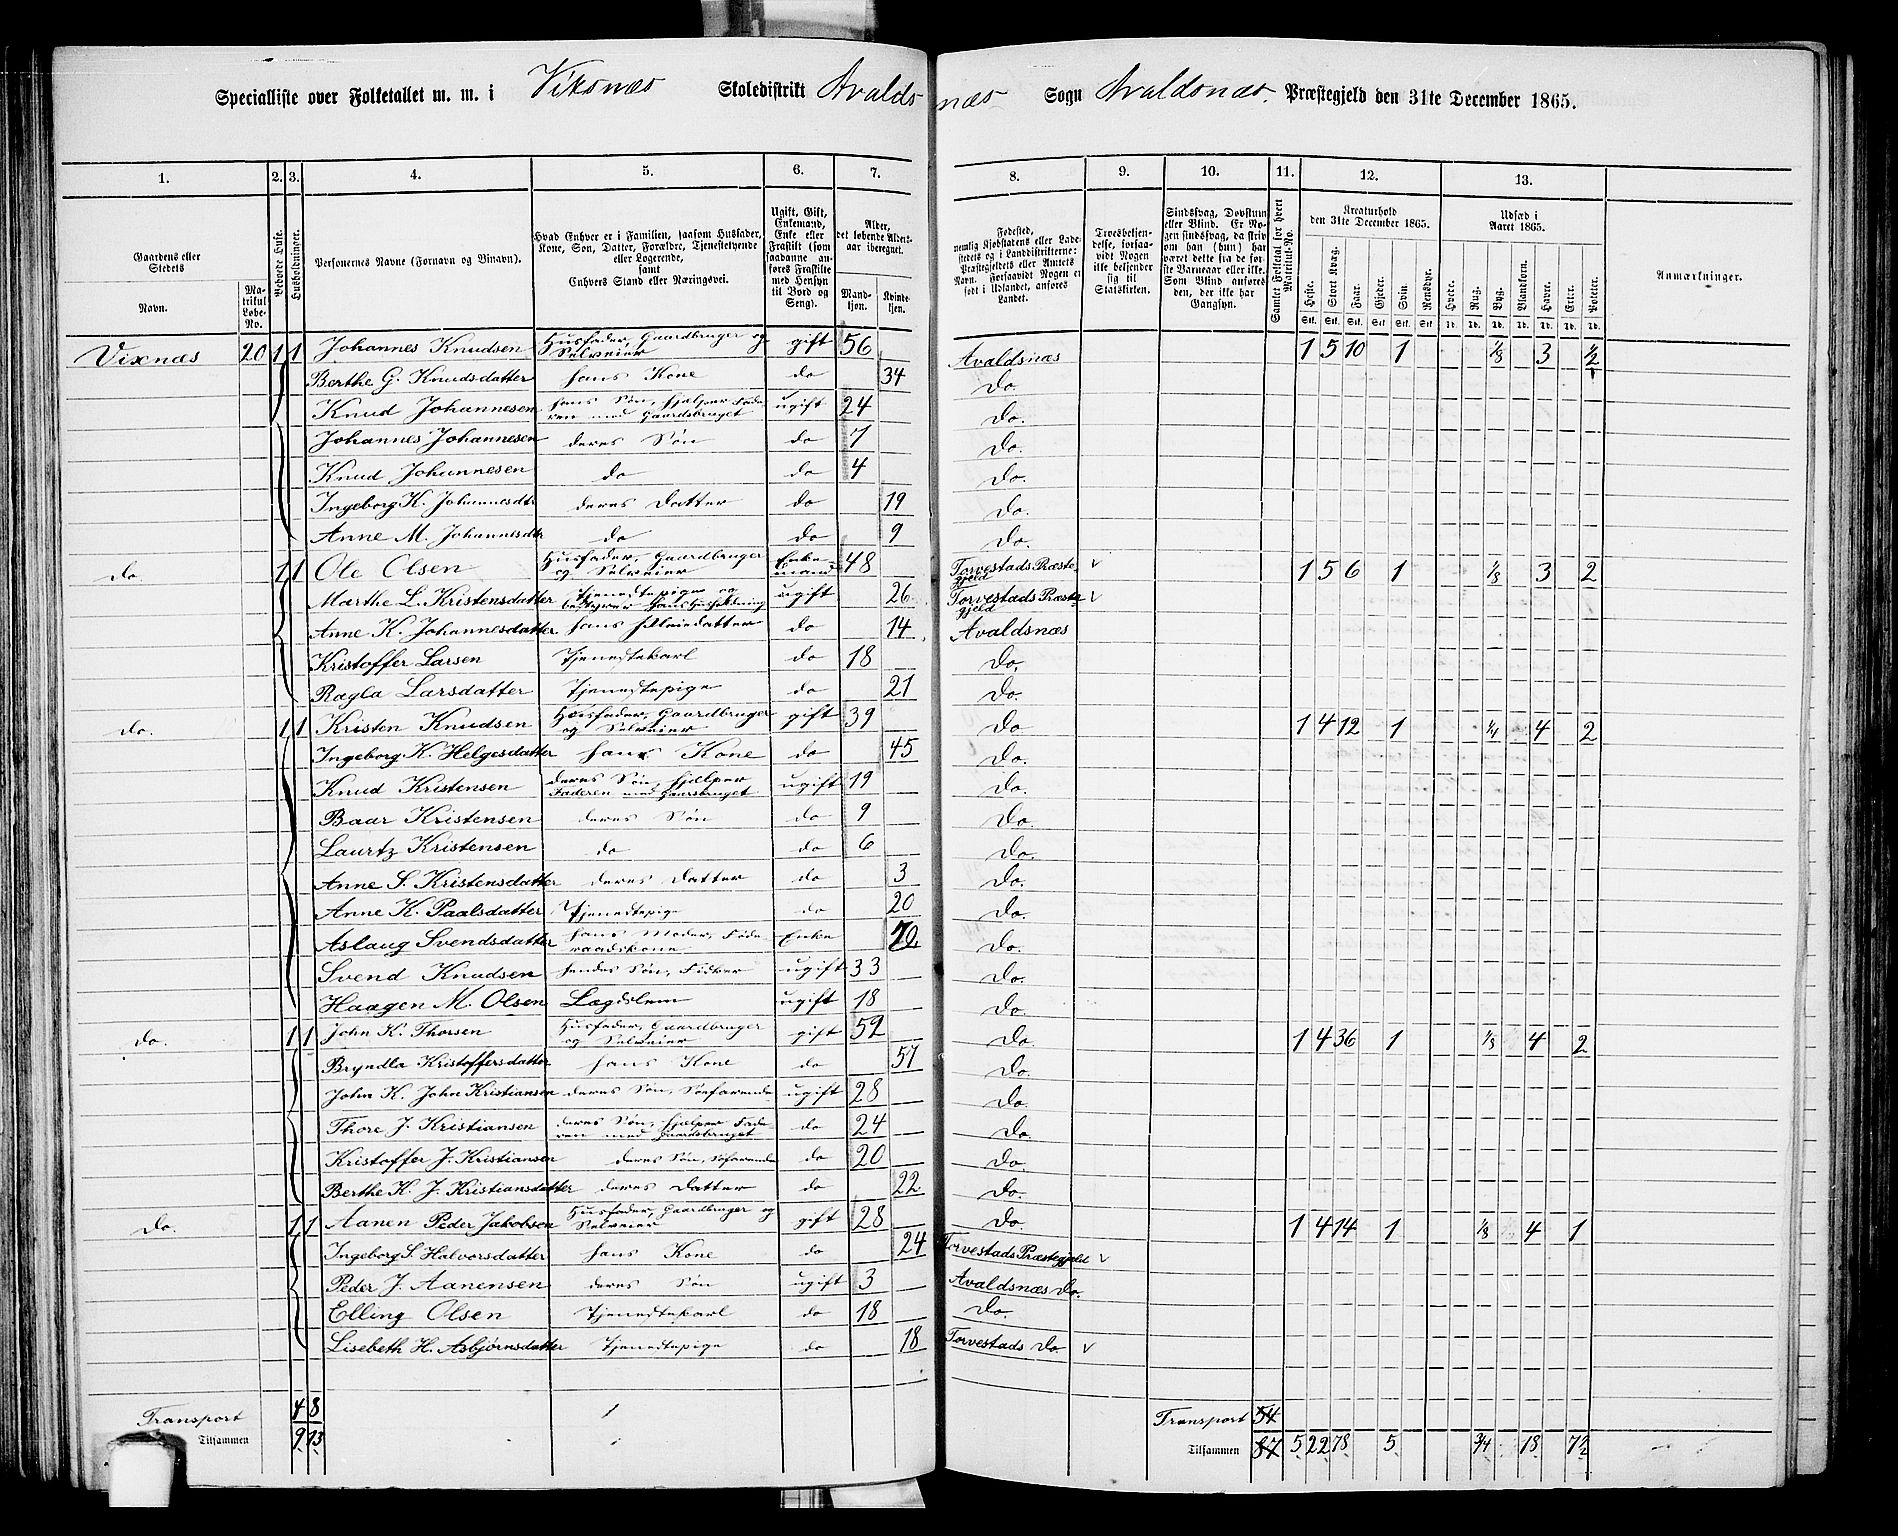 Specialliste over Folketallet m. m. i Viksnæs Skoledistrikt Avaldsnæs Sogn Avaldsnæs Præstegjeld den 31te December 1865.
1. 2. 3. 4. 5. 6. 7. 8. 9. 10. 11. 12. 13.
Gaardens eller Stedets
Navn.
Matrikul Løbe-No.
Bebodde Huse.
Husholdninger.
Personernes Navne (Fornavn og Binavn).
Hvad Enhver er i Familien, saasom Husfader, Kone, Søn, Datter, Forældre, Tjenestetyende eller Logerende, samt Enhvers Stand eller Næringsvei.
Ugift, Gift, Enkemand, Enke eller Fraskilt (som saadanne anføres Fraskilte med Hensyn til Bord og Seng).
Alder, det løbende Aldersaar iberegnet.
Mandkjøn. Kvindekjøn.
Fødested, nemlig Kjøbstadens eller Ladestedets og i Landdistrikterne: Præstegjeldets eller Amtets Navn, forsaavidt Nogen er født i Udlandet, anføres Landet.
Troesbekjendelse, forsaavidt Nogen ikke bekjender sig til Statskirken.
Sindssvag, Døvstum eller Blind. Er Nogen sindssvag, da skriv om han (hun) har været dette fra de første Barneaar eller ikke. Som Blind anføres den, der ikke har Gangsyn.
Samlet Folketal for hvert Matrikul-No.
Kreaturhold den 31te December 1865.
Heste. Stort Kvæg. Faar. Gjeder. Svin. Rensdyr.
Udsæd i Aaret 1865.
Hvede. Rug. Byg. Blandkorn. Havre. Erter. Poteter.
Anmærkninger.
Vixnæs 20 1 1 Johannes Knudsen Husfader, Gaardbruger og Selveier gift 56 Avaldsnæs 1 5 10 1 1/8 3 1/2
Berthe G. Knudsdatter hans Kone do 34 do.
Knud Johannesen hans Søn, hjælper Faderen med Gaardsbruget ugift 24 do.
Johannes Johannesen deres Søn do 7 do.
Knud Johannesen do do 4 do.
Ingeborg K. Johannesdtr deres Datter do 19 do.
Anne M. Johannesdtr do do 9 do.
do. 1 1 Ole Olsen Husfader, Gaardbruger og Selveier Enkemand 48 Torvestads Præstegjeld v 1 5 6 1 1/8 3 2
Marthe L. Kristensdatter Tjenestepige og bestyrer hans Husholdning ugift 26 Torvestads Præstegjeld v
Anne K. Johannesdatter hans do 14 Avaldsnæs
Kristoffer Larsen Tjenestekarl do 18 do.
Ragla Larsdatter Tjenestepige do 21 do.
do. 1 1 Kristen Knudsen Husfader, Gaardbruger og Selveier gift 39 do 1 4 12 1 1/4 4 2
Ingeborg K. Helgesdatter hans Kone do 45 do.
Knud Kristensen deres Søn, hjælper Faderen med Gaarsbruget ugift 19 do.
Baar Kristensen deres Søn do 9 do.
Laurtz Kristensen do do 6 do.
Anne S. Kristensdatter deres Datter do 3 do.
Anne K. Paalsdatter Tjenestepige do 20 do.
Aslaug Svendsdatter hans Moder, Føderaadskone Enke 70. do.
Svend Knudsen hendes Søn, Fisker ugift 33 do.
Haagen M. Olsen Lægdslem ugift 18 do.
do. 1 1 John K. Thorsen Husfader, Gaardbruger og Selveier gift 52 do. 1 4 36 1 1/8 4 2
Bryndla Kristoffersdatter hans Kone do 57 do.
John K. John Kristiansen deres Søn, Søfarende ugift 28 do.
Thore J. Kristiansen deres Søn, hjælper Faderen med Gaardsbruget do 24 do.
Kristoffer J. Kristiansen deres Søn, Søfarende do 20 do.
Berthe K. J. Kristiansdatter deres Datter do 22 do.
do. 1 1 Aanen Peder Jakobsen Husfader, Gaardbruger og Selveier gift 28 do. 1 4 14 1 1/8 4 1
Ingeborg S. Halvorsdatter hans Kone do 24 Torvestads Præstegjeld v
Peder J. Aanensen deres Søn ugift 3 Avaldsnæs do.
Elling Olsen Tjenestekarl do 18 do.
Lisebeth H. Asbjørnsdatter Tjenestepige do 18 Torvestads do. v
Transport 4 8 Transport 54
Tilsammen 9 13 Tilsammen 87 5 22 78 5 3/4 18 7 1/2